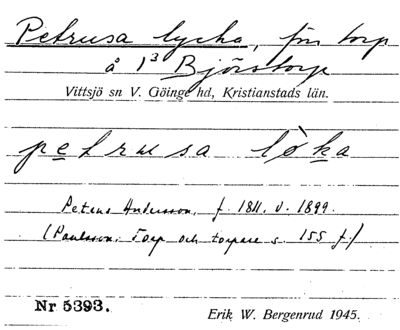 Petrusa lycka, fm torp
å 1³ Björstorp
Vittsjö sn V. Göinge hd, Kristianstads län.
petrusa lò̱ḵa
Petrus Andersson, f. 1811. d. 1899.
(Paulsson: Torp och torpare s. 155 f.)
Nr 5393.
Erik W. Bergenrud 1945.